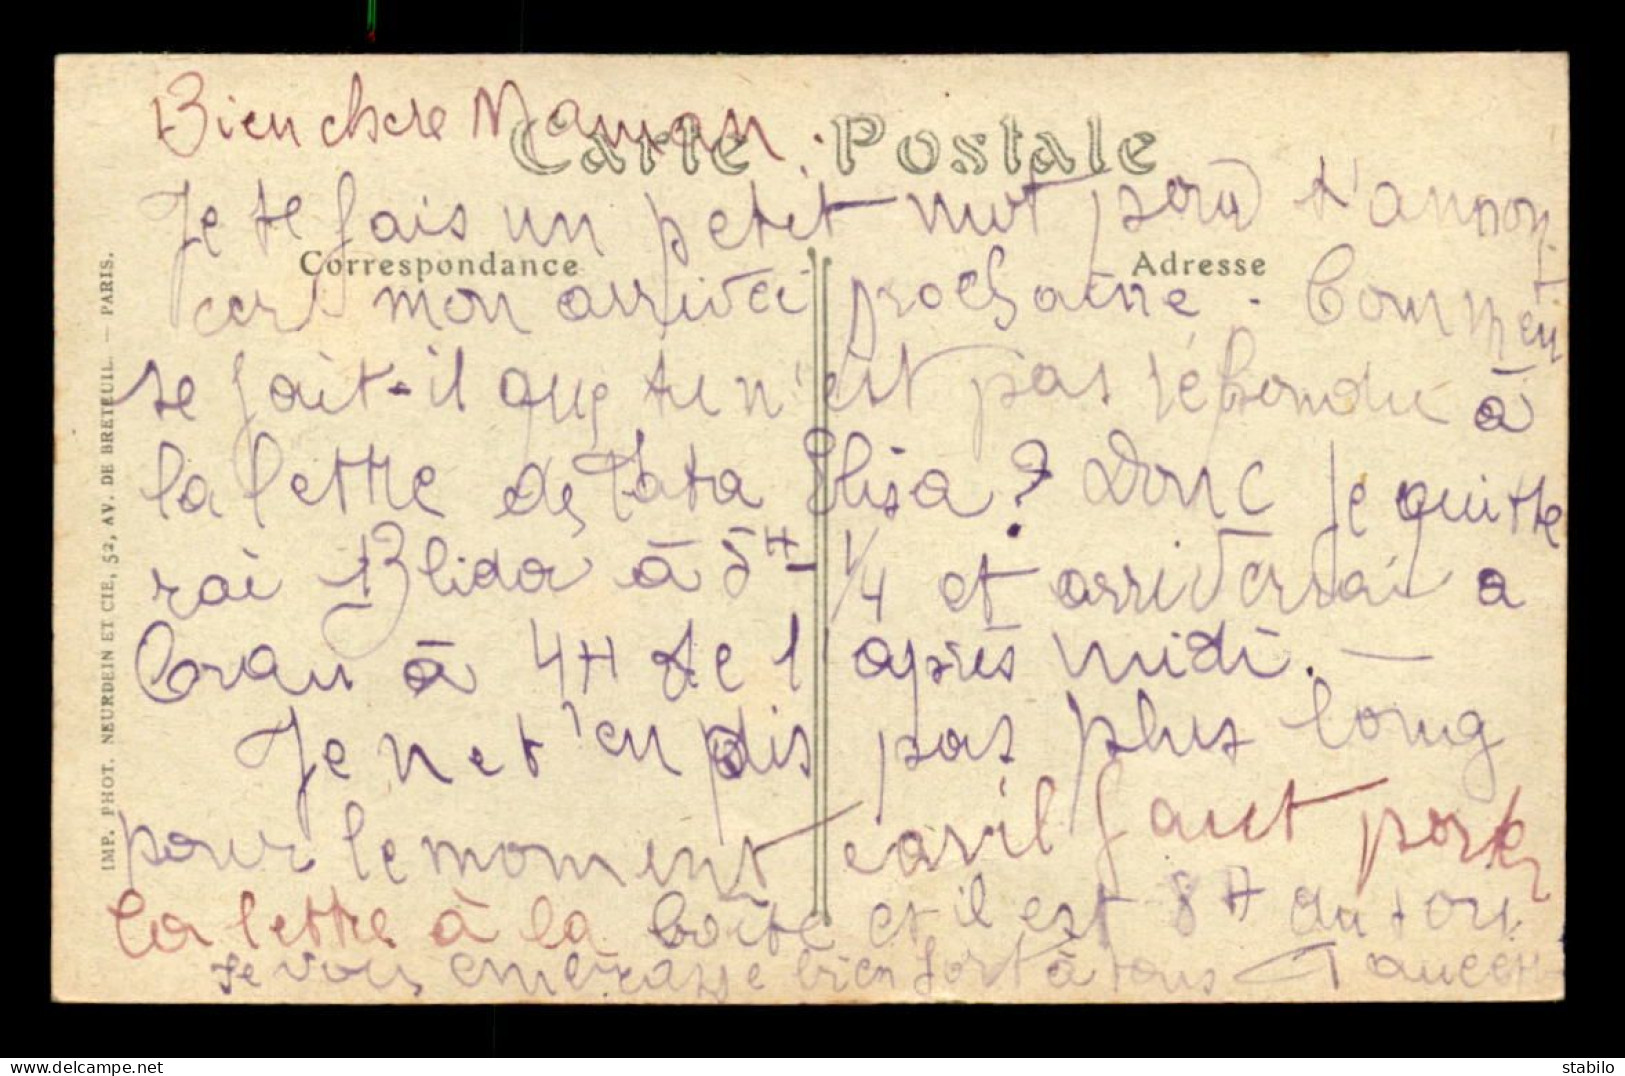 Bien chere Maman.
Carte Postale
Je te fais un petit mot pour t'annon
Correspondance
Adresse
cer mon arrivéi prochaine. Commen
se fait-il que tu n'est pas réhondu à
la lettre de Tata Elisa? Donc je quitte
rai Blida à 5H 1/4 et arriverrai a
Oran à 4H de l'après midi. —
Je ne t'en dis pas plus long
pour le moment car il faut porter
la lettre à la boîte et il est 8H du soir
Je vous embrasse bien fort à tous
IMP. PHOT. NEURDEIN ET CIE, 52, AV. DE BRETEUIL. — PARIS.
delcampe.net
stabilo